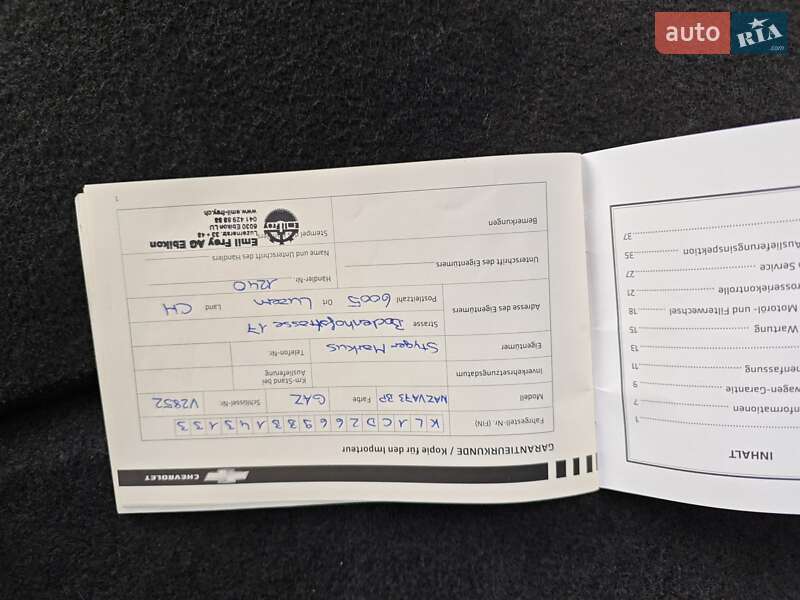 auto RIA.com
CHEVROLET
GARANTIEURKUNDE / Kopie für den Importeur
Fahrgestell-Nr. (FIN)
KL1CD266988143133
Modell
Farbe GAZ
Schlüssel-Nr. V2852
Inverkehrsetzungsdatum
Km-Stand bei Auslieferung
Eigentümer
Styger Markus
Telefon-Nr.
Adresse des Eigentümers
Strasse Bodenhofstrasse 17
Postleitzahl 6005 Ort Luzern Land CH
Händler-Nr. 1240
Unterschrift des Eigentümers
Name und Unterschrift des Händlers
Bemerkungen
Stempel
Emil Frey
Emil Frey AG Ebikon
6030 Ebikon LU
041 429 88 88
www.emil-frey.ch
1
INHALT
nformationen 1
wagen-Garantie 7
enfassung 9
11
13
Wartung 15
Motoröl- und Filterwechsel 18
rosseriekontrolle 21
n Service 27
uslieferungsinspektion 35
37